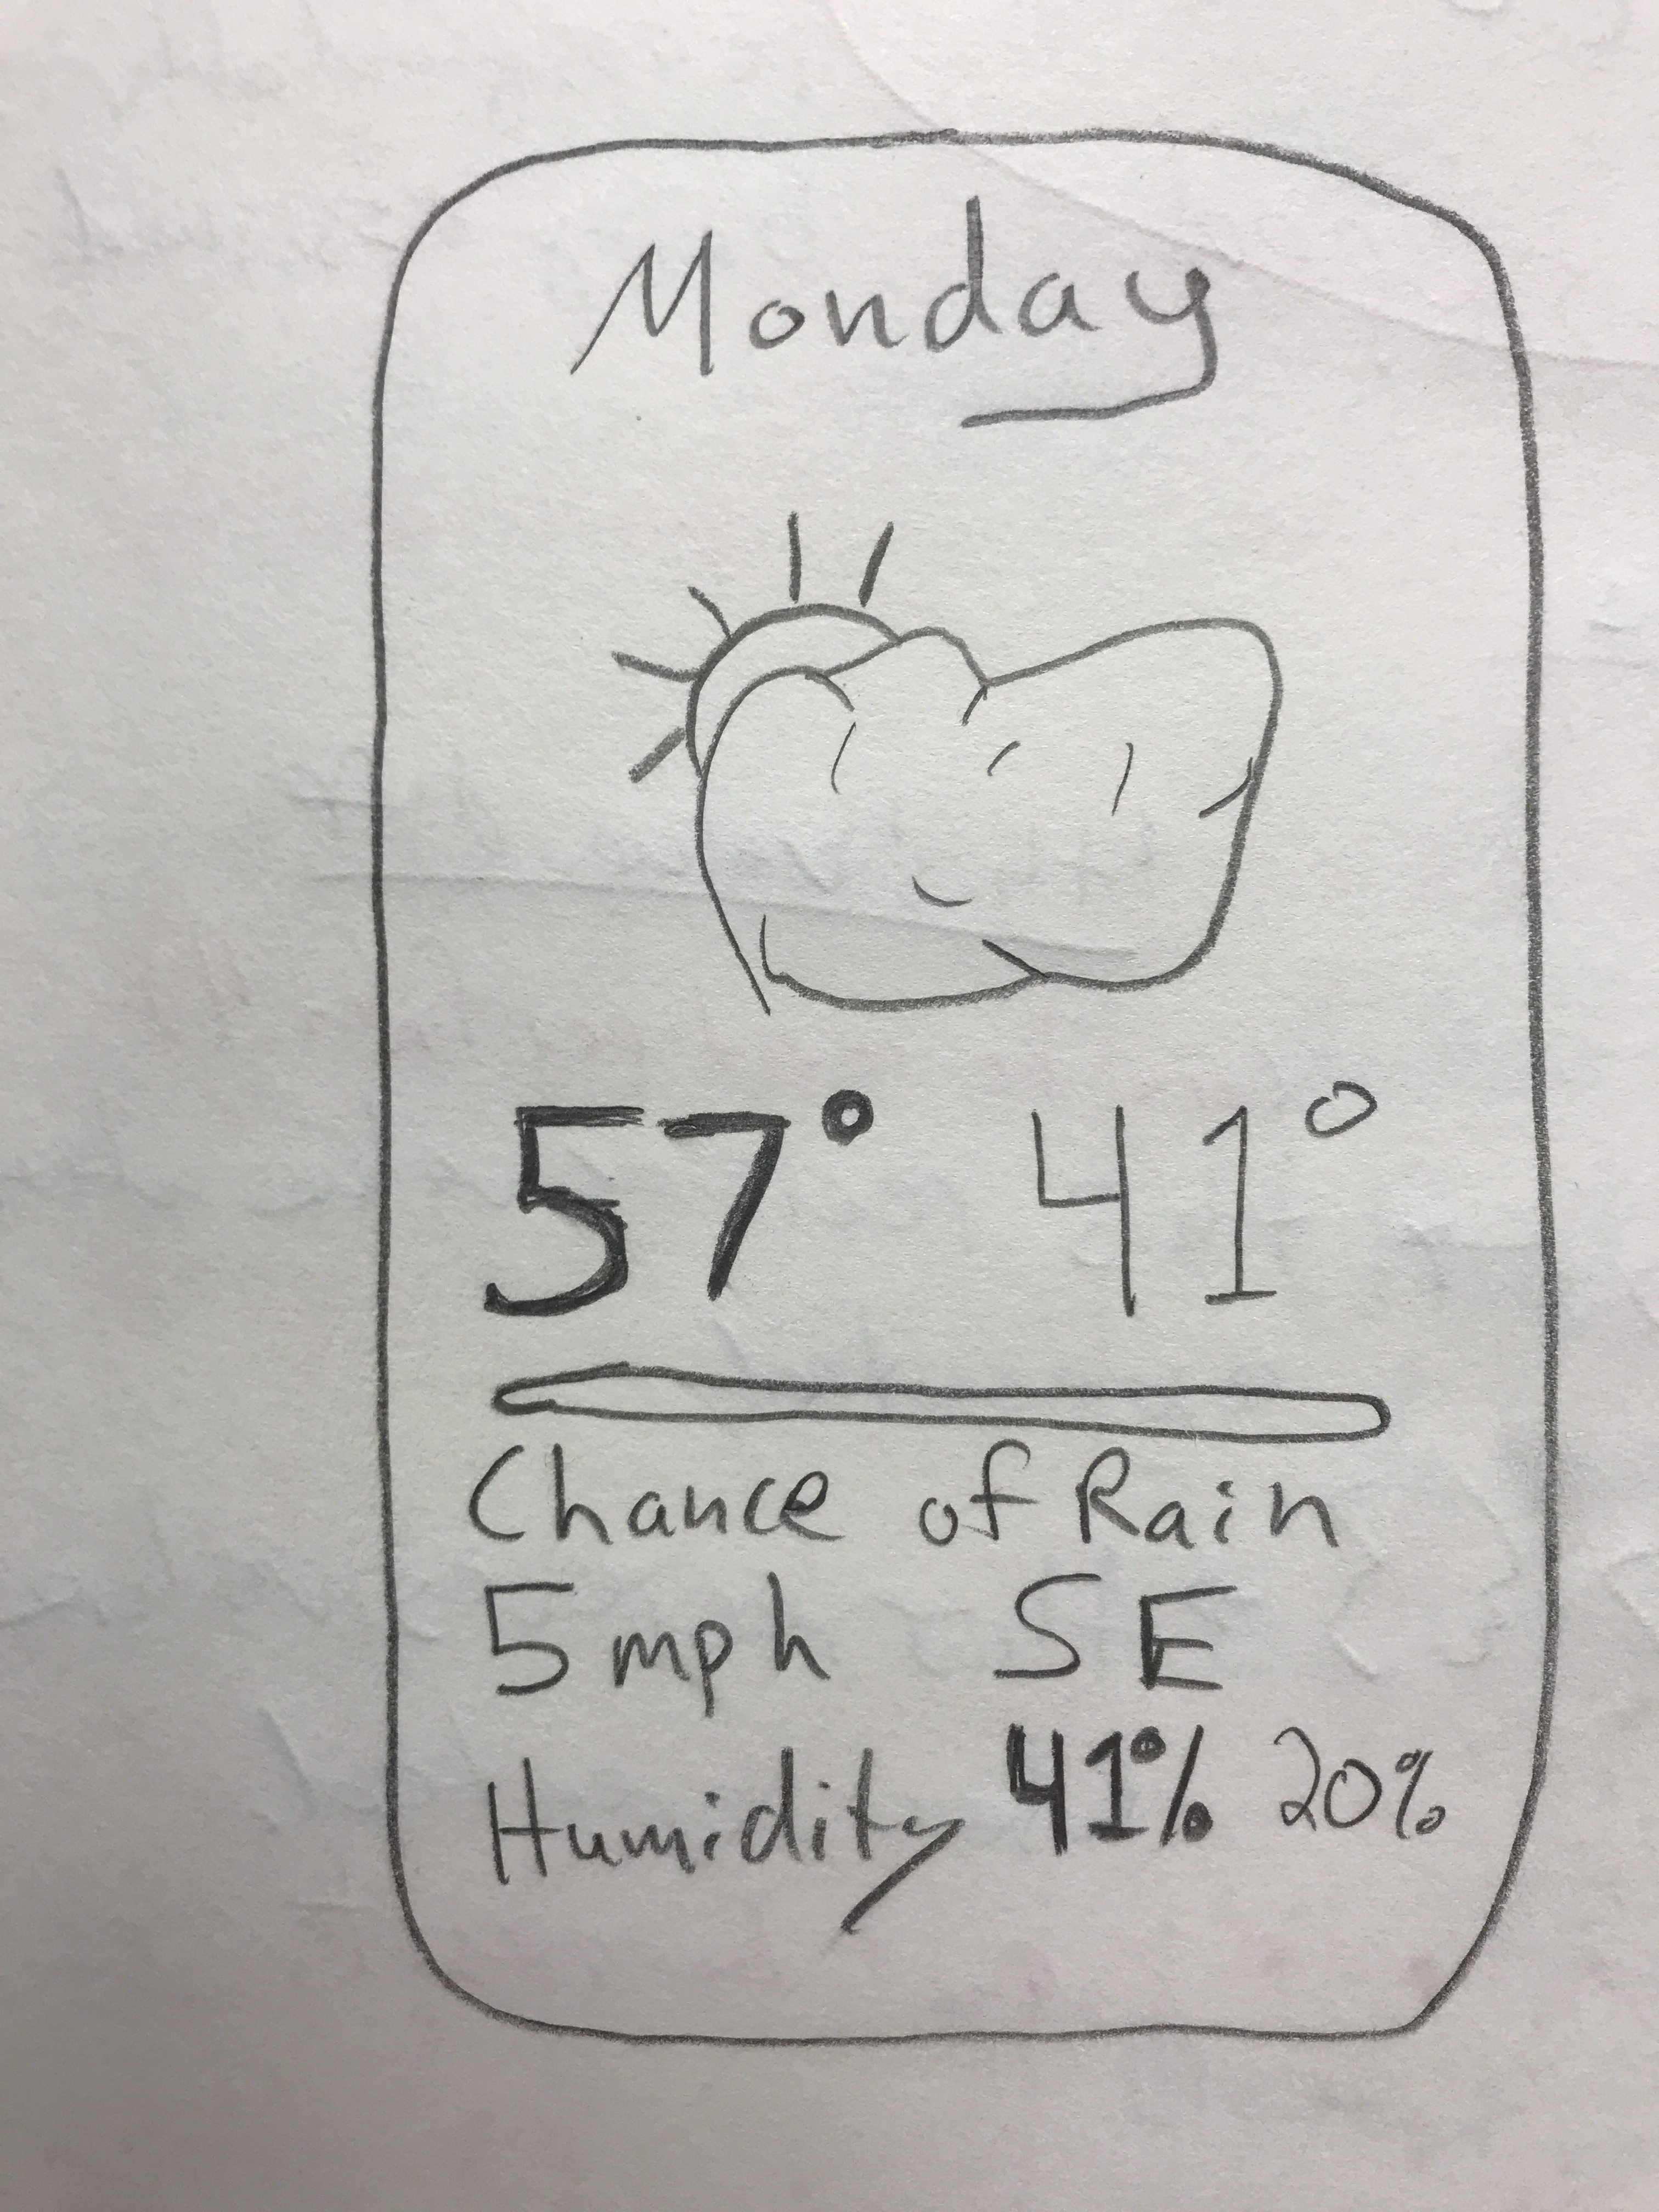 Monday
57° 41°
Chance of Rain
5mph SE
Humidity 41% 20%